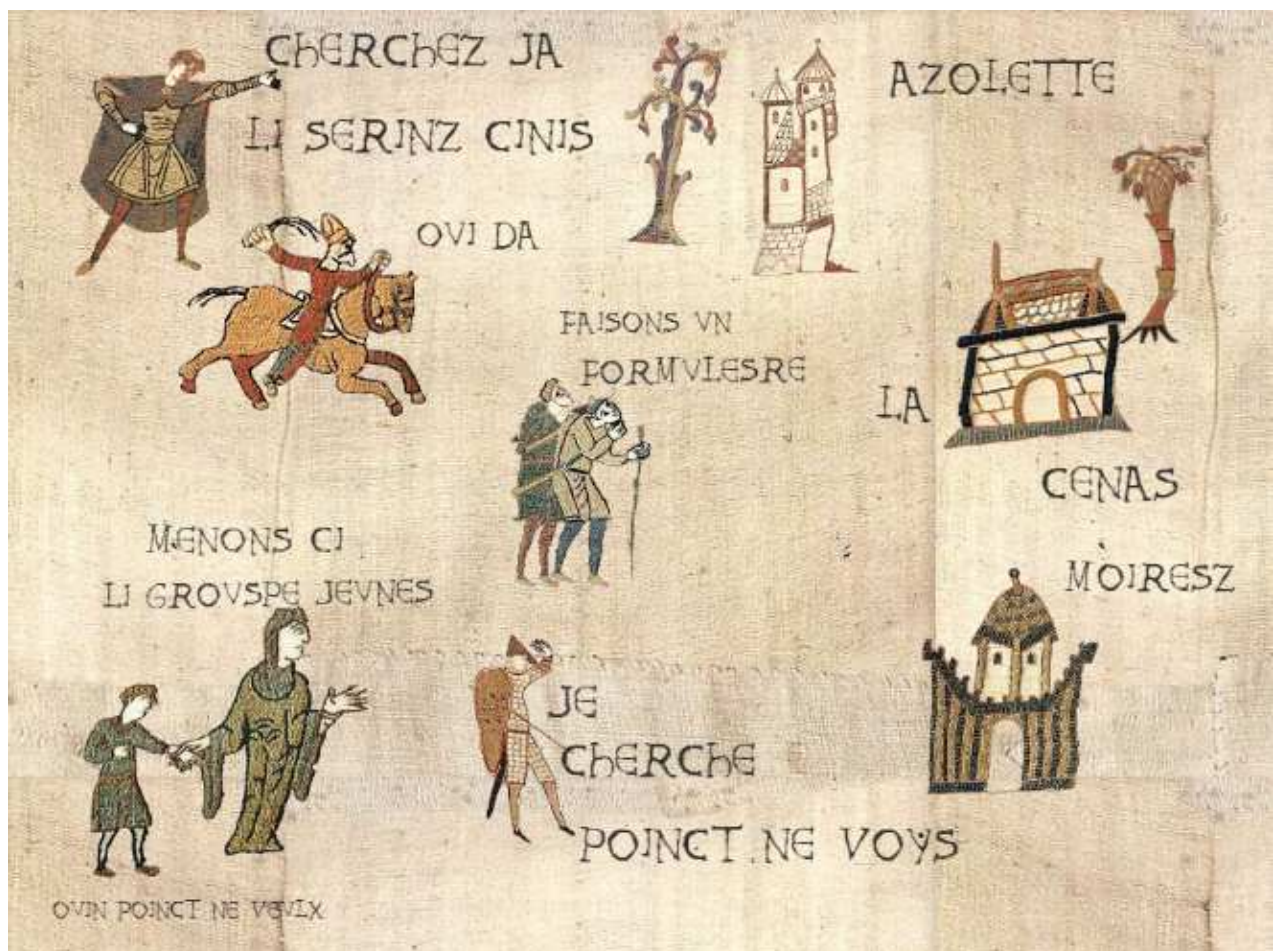 CHERCHEZ JA
LI SERINZ CINIS
AZOLETTE
OVI DA
FAISONS VN
FORMVLESRE
LA
CENAS
MENONS CI
LI GROVSPE JEVNES
MÒIRESZ
JE
CHERCHE
POINCT NE VOYS
OVIN POINCT NE VEVLX